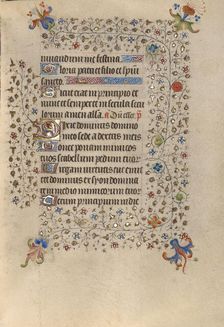 iuvandum me festina
Gloria patri et filio et spiri
tui sancto
Sicut erat in principio et
nunc et semper et in secula secu
lorum amen alla
Dixit dominus domino
meo sede a dextris meis
Donec ponam inimicos
tuos scabellum pedum tuor
Virgam virtutis tue emit
tet dominus ex syon domina
re in medio inimicorum tuorum
Tecum principium in die